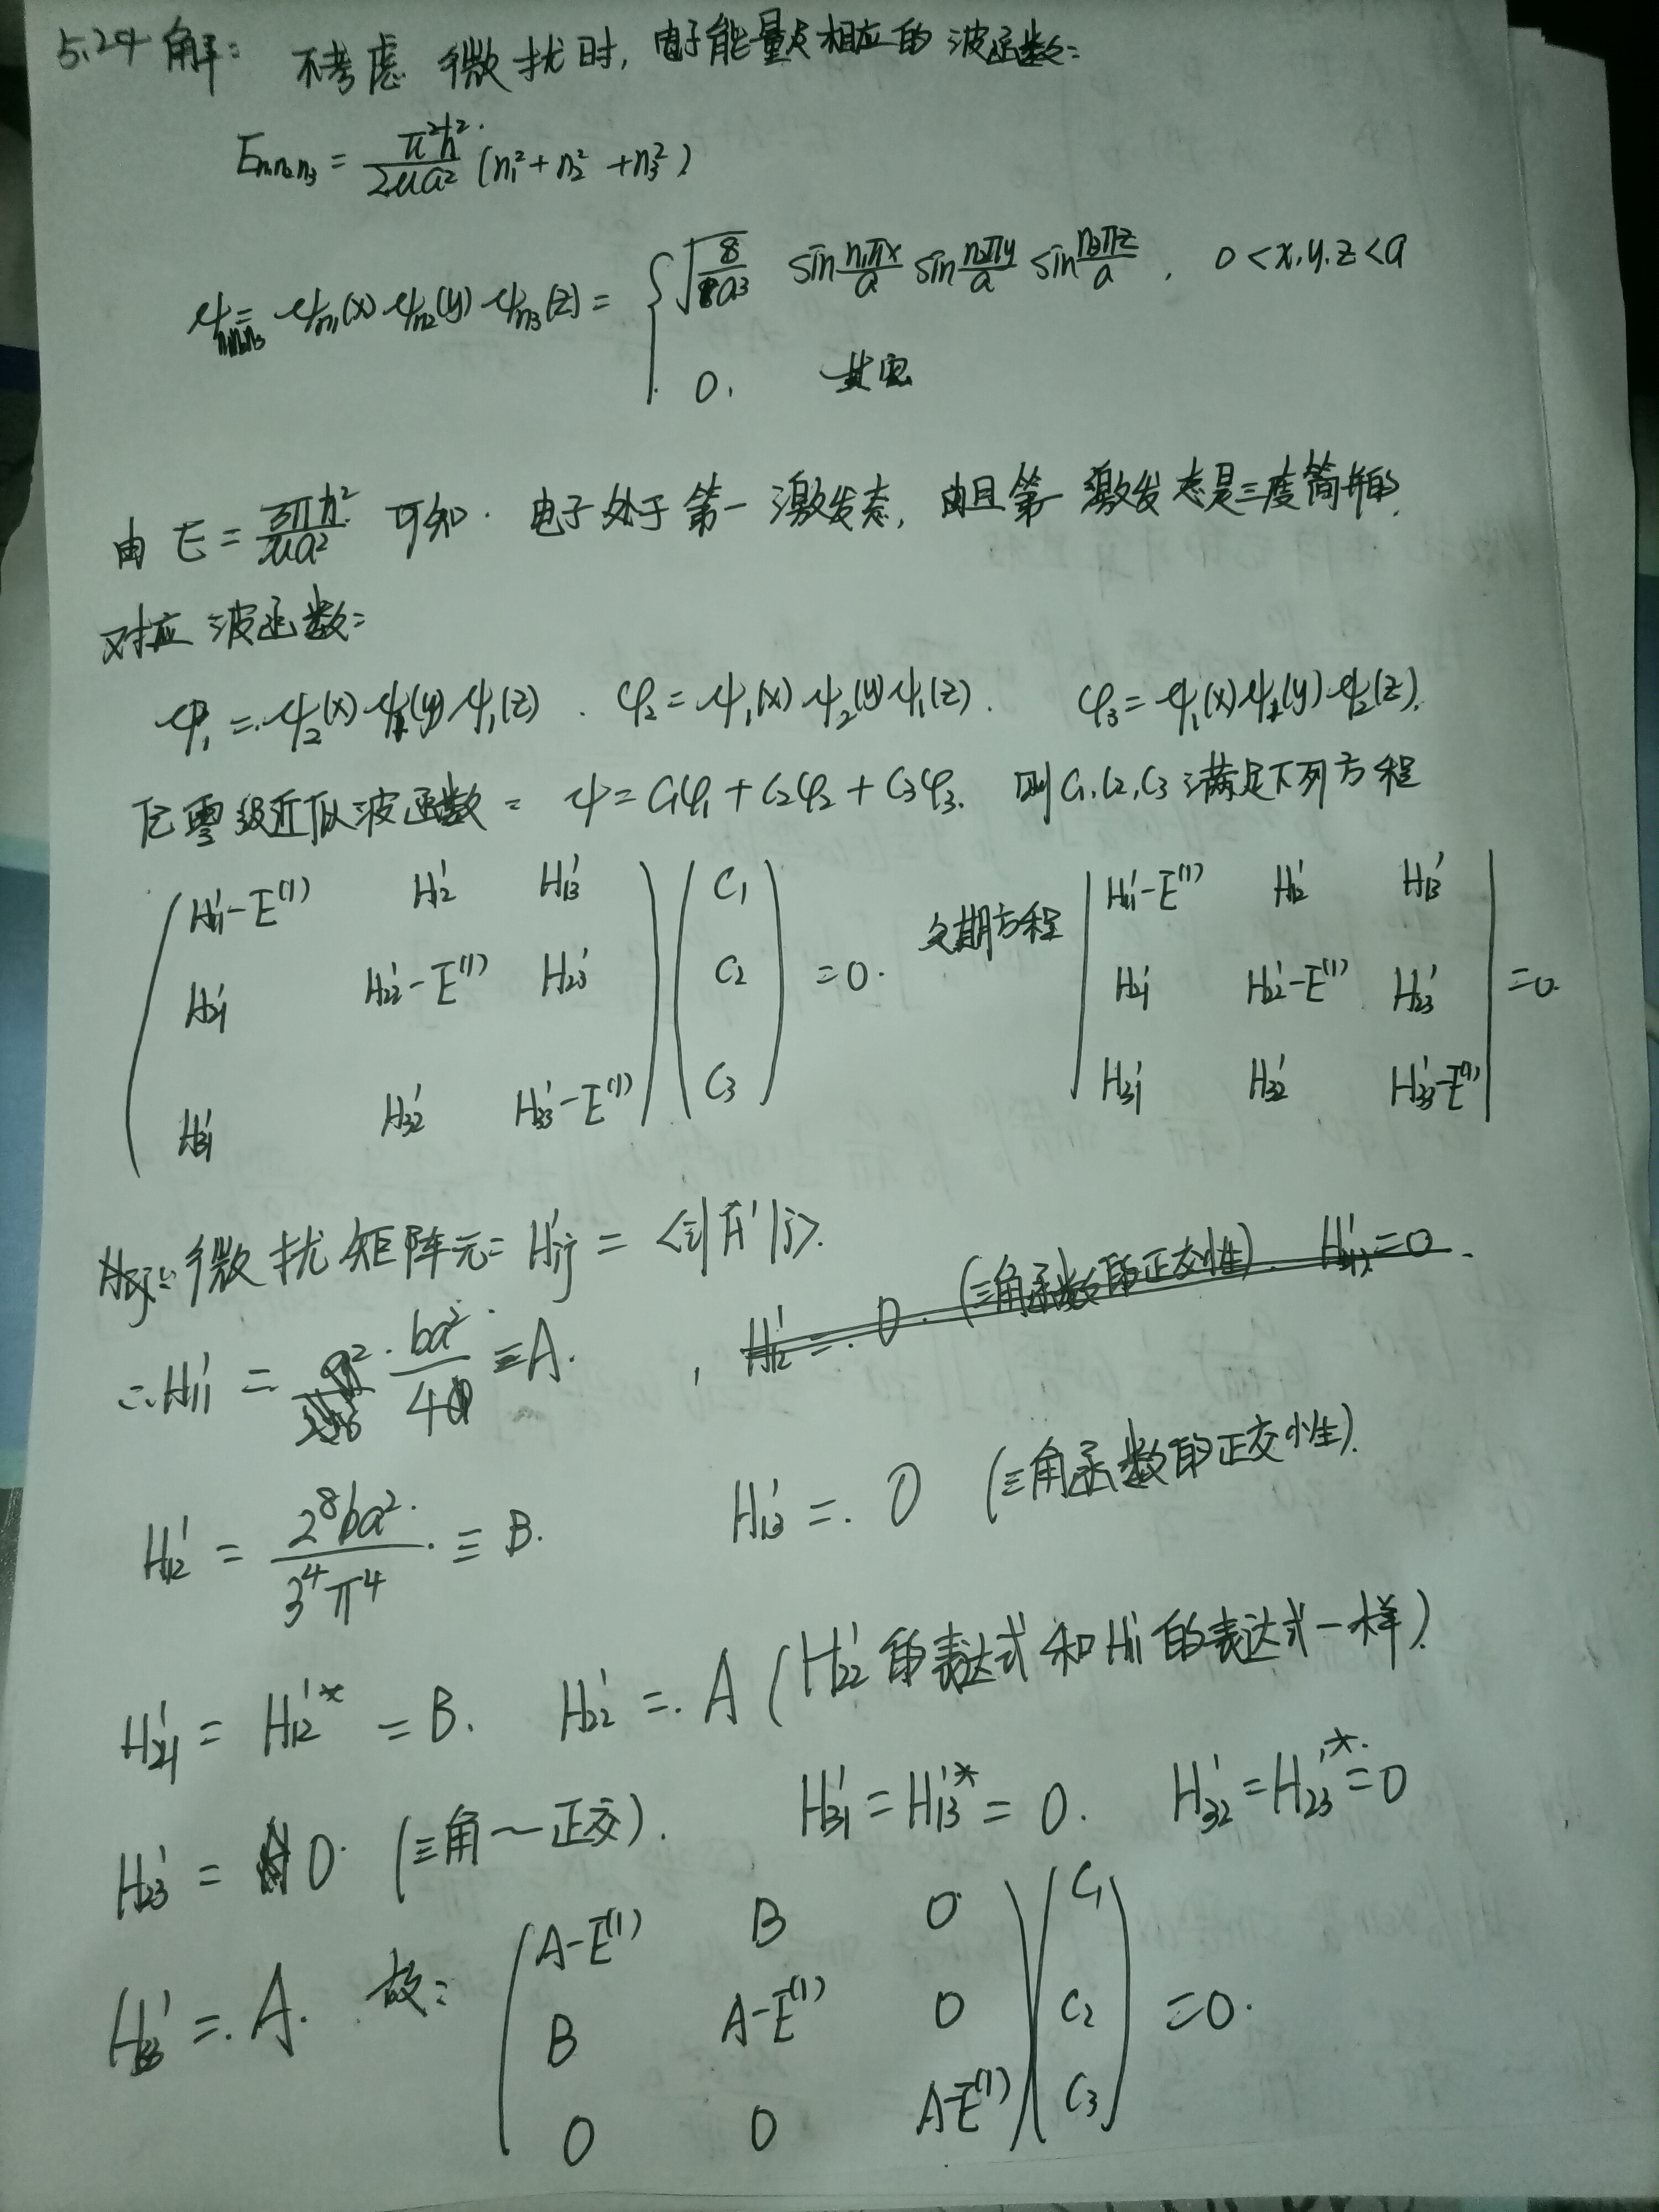 5.24 解: 不考虑 微扰时, 电子能量及相应的波函数:
E_{n₁n₂n₃} = \frac{π²ħ²}{2μa²} (n₁² + n₂² + n₃²)
ψ_{n₁n₂n₃} = ψ_{n₁}(x) ψ_{n₂}(y) ψ_{n₃}(z) = { \sqrt{\frac{8}{a³}} sin\frac{n₁πx}{a} sin\frac{n₂πy}{a} sin\frac{n₃πz}{a} , 0<x,y,z<a
0, 其它
由 E = \frac{3πħ²}{μa²} 可知. 电子处于第一激发态, 由且第一激发态是三度简并的,
对应波函数:
φ₁ = ψ₂(x) ψ₁(y) ψ₁(z) . φ₂ = ψ₁(x) ψ₂(y) ψ₁(z). φ₃ = ψ₁(x) ψ₁(y) ψ₂(z).
记零级近似波函数 = ψ = C₁φ₁ + C₂φ₂ + C₃φ₃. 则 C₁,C₂,C₃ 满足下列方程
( H₁₁'−E⁽¹⁾ H₁₂' H₁₃' ) ( C₁ ) | H₁₁'−E⁽¹⁾ H₁₂' H₁₃' |
( H₂₁' H₂₂'−E⁽¹⁾ H₂₃' ) ( C₂ ) =0. 久期方程 | H₂₁' H₂₂'−E⁽¹⁾ H₂₃' | =0.
( H₃₁' H₃₂' H₃₃'−E⁽¹⁾ ) ( C₃ ) | H₃₁' H₃₂' H₃₃'−E⁽¹⁾ |
微扰矩阵元= H'ij = <i|Ĥ'|j>.
∴ H₁₁' = \frac{ba²}{4} ≡ A. , H₁₂' = 0. (三角函数的正交性). =0.
H₁₂' = \frac{2⁸ba²}{3⁴π⁴} ≡ B. H₁₃' =. 0 (三角函数的正交性).
H₂₁' = H₁₂'* = B. H₂₂' =. A (H₂₂' 的表达式和 H₁₁' 的表达式一样)
H₂₃' = 0. (三角～正交). H₃₁' = H₁₃'* = 0. H₃₂' = H₂₃'* = 0
H₃₃' =. A. 故: ( A−E⁽¹⁾ B 0 ) ( C₁ )
( B A−E⁽¹⁾ 0 ) ( C₂ ) =0.
( 0 0 A−E⁽¹⁾ ) ( C₃ )